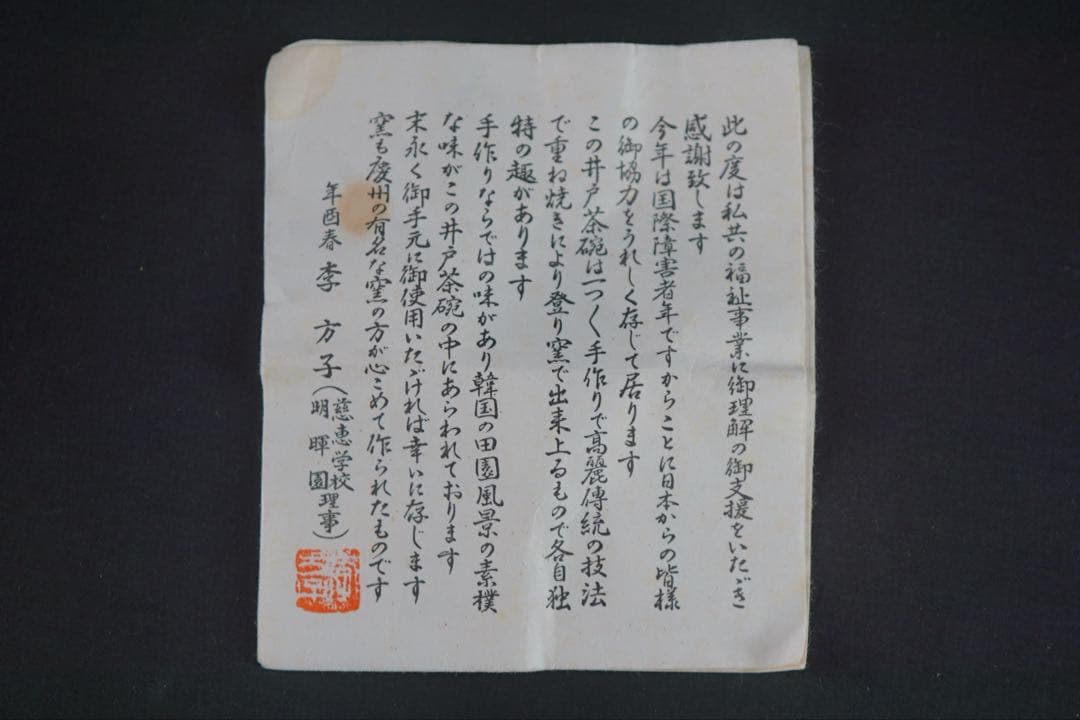 此の度は私共の福祉事業に御理解の御支援をいたゞき
感謝致します
今年は国際障害者年ですからことに日本からの皆様
の御協力をうれしく存じて居ります
この井戸茶碗は一つ〱手作りで高麗傳統の技法
で重ね焼きにより登り窯で出来上るもので各自独
特の趣があります
手作りならではの味があり韓国の田園風景の素樸
な味がこの井戸茶碗の中にあらわれております
末永く御手元に御使用いたゞければ幸いに存じます
窯も慶州の有名な窯の方が心こめて作られたものです
年酉春 李 方 子(慈恵学校
明暉園 理事)